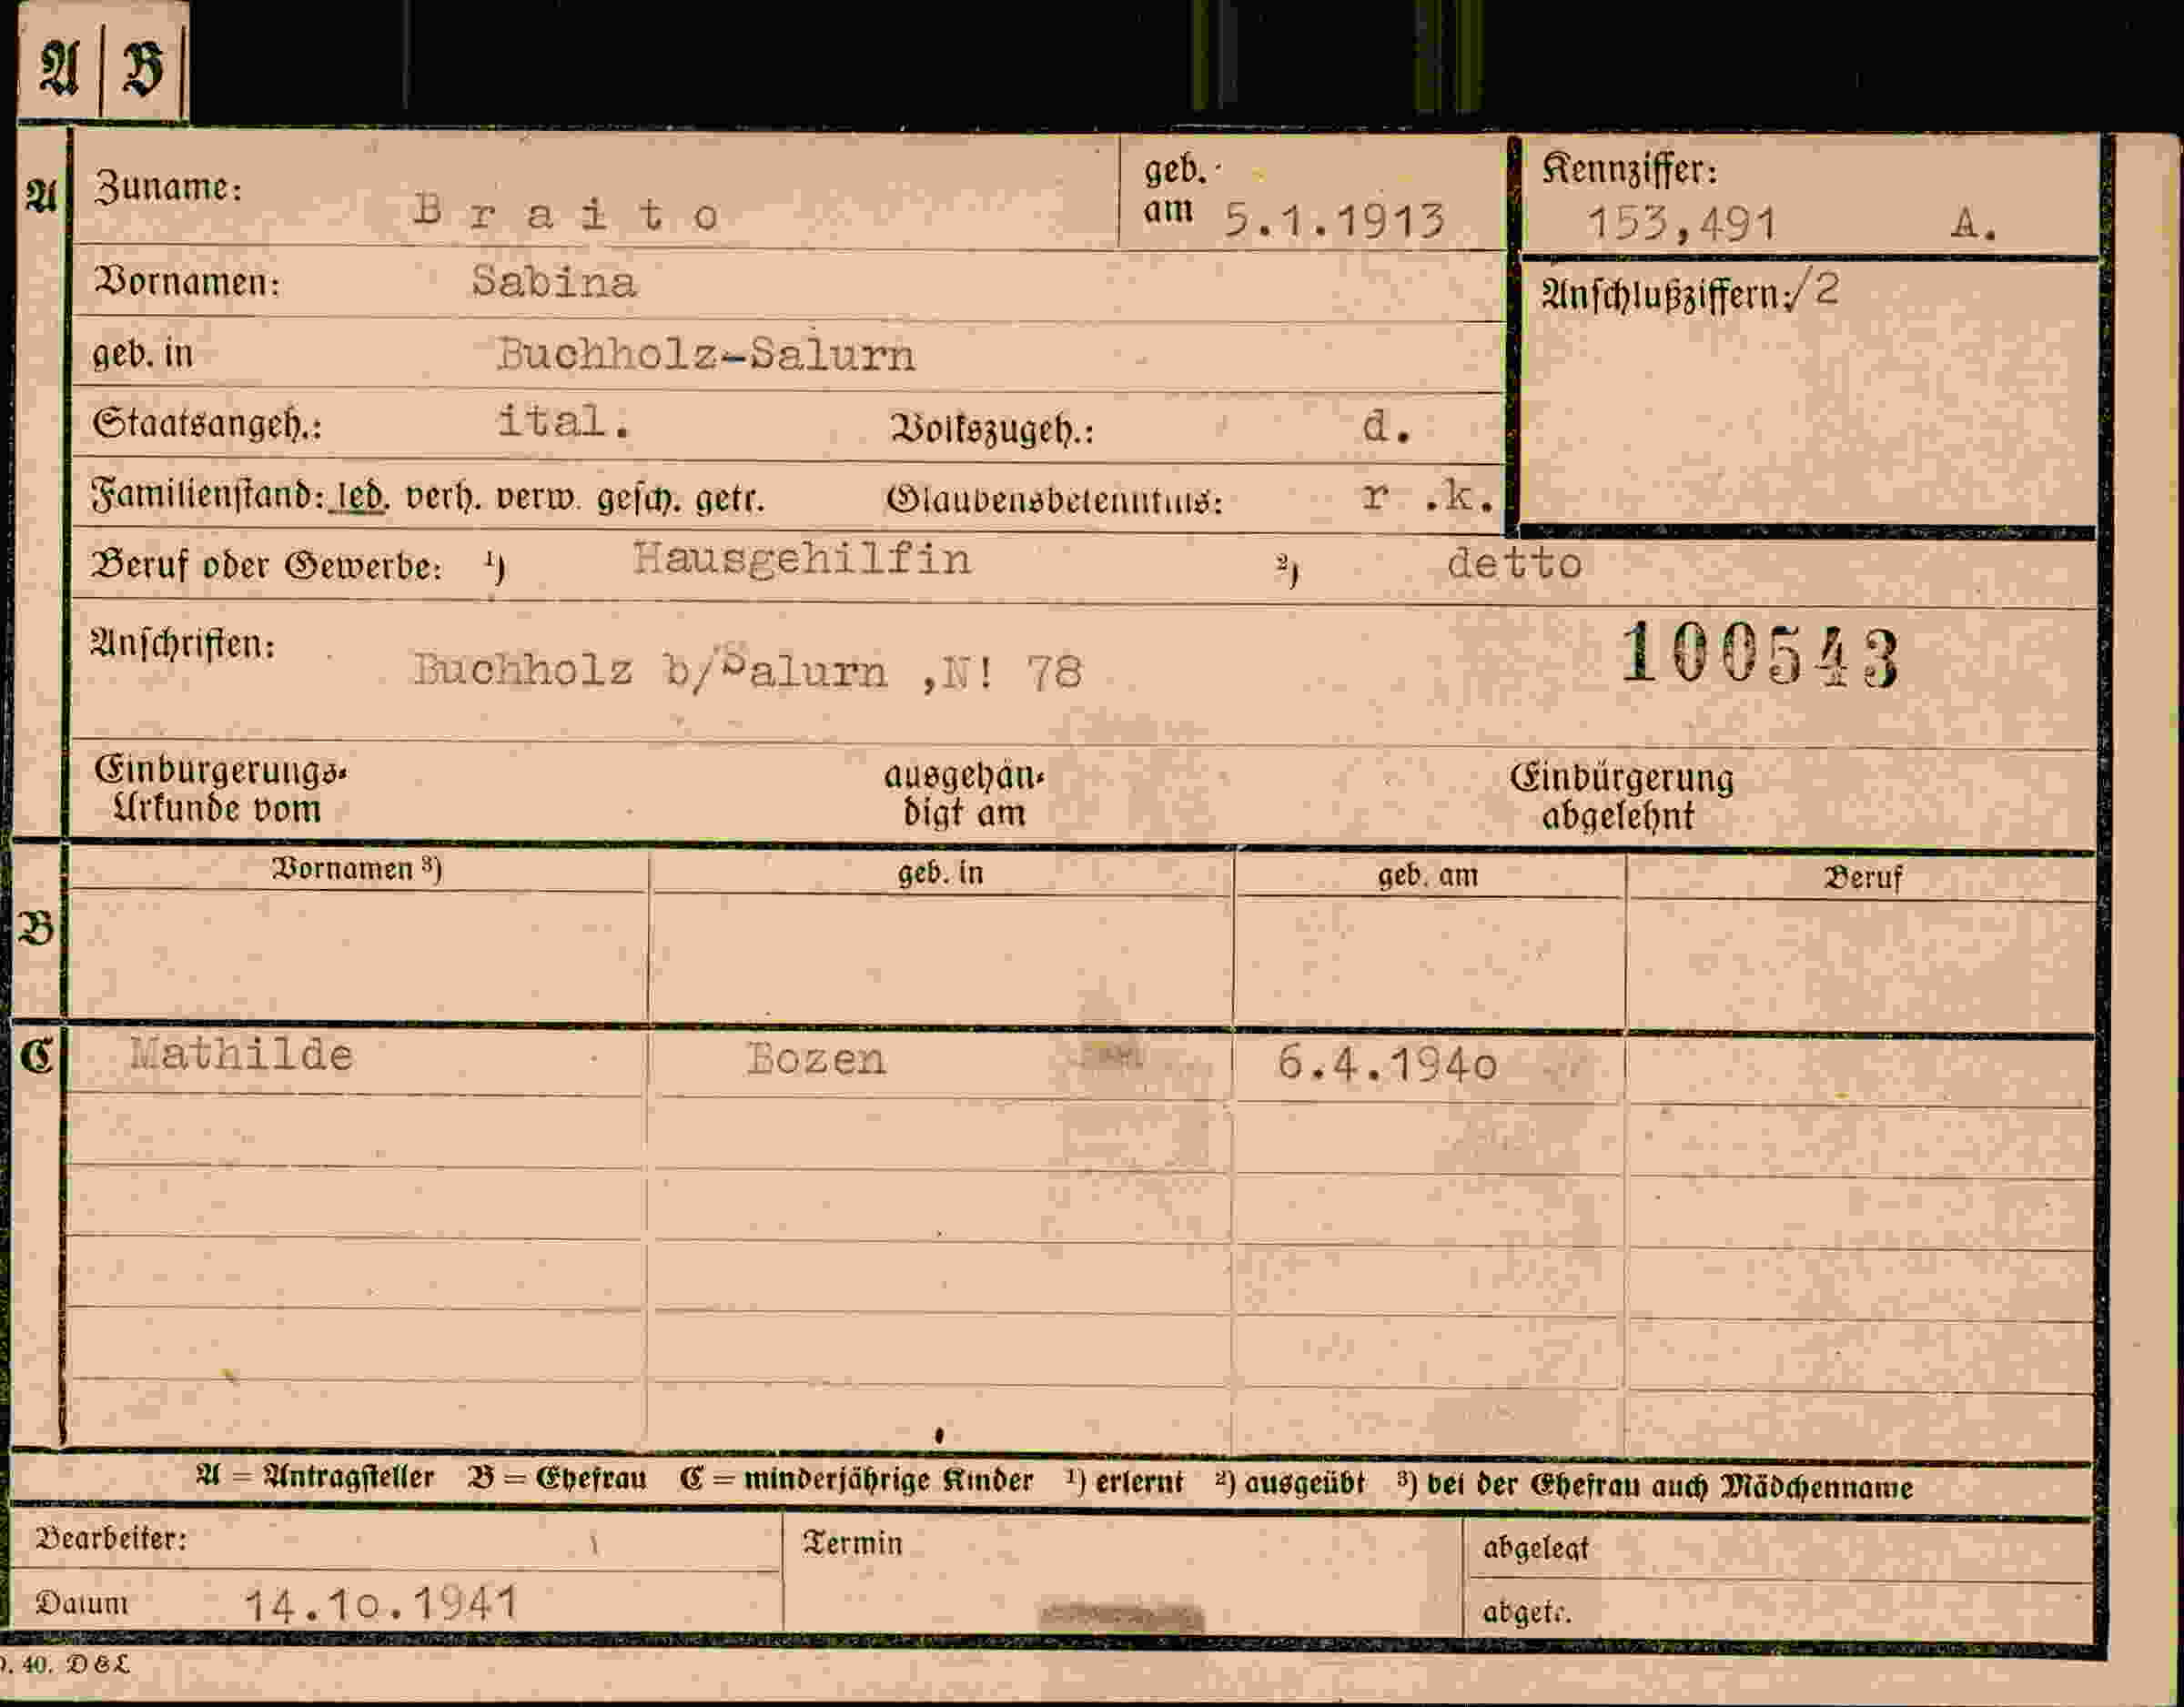 A | B
A Zuname: Braito geb. am 5.1.1913 Kennziffer: 153,491 A.
Vornamen: Sabina Anschlußziffern:/2
geb. in Buchholz-Salurn
Staatsangeh.: ital. Volkszugeh.: d.
Familienstand: led. verh. verw. gesch. getr. Glaubensbekenntnis: r .k.
Beruf oder Gewerbe: ¹) Hausgehilfin ²) detto
Anschriften: Buchholz b/Salurn ,N! 78 100543
Einbürgerungs-
Urkunde vom
ausgehän-
digt am
Einbürgerung
abgelehnt
Vornamen ³) geb. in geb. am Beruf
B
C Mathilde Bozen 6.4.194o
A = Antragsteller B = Ehefrau C = minderjährige Kinder ¹) erlernt ²) ausgeübt ³) bei der Ehefrau auch Mädchenname
Bearbeiter: Termin abgelegt
Datum 14.1o.1941 abgetr.
40. D&L